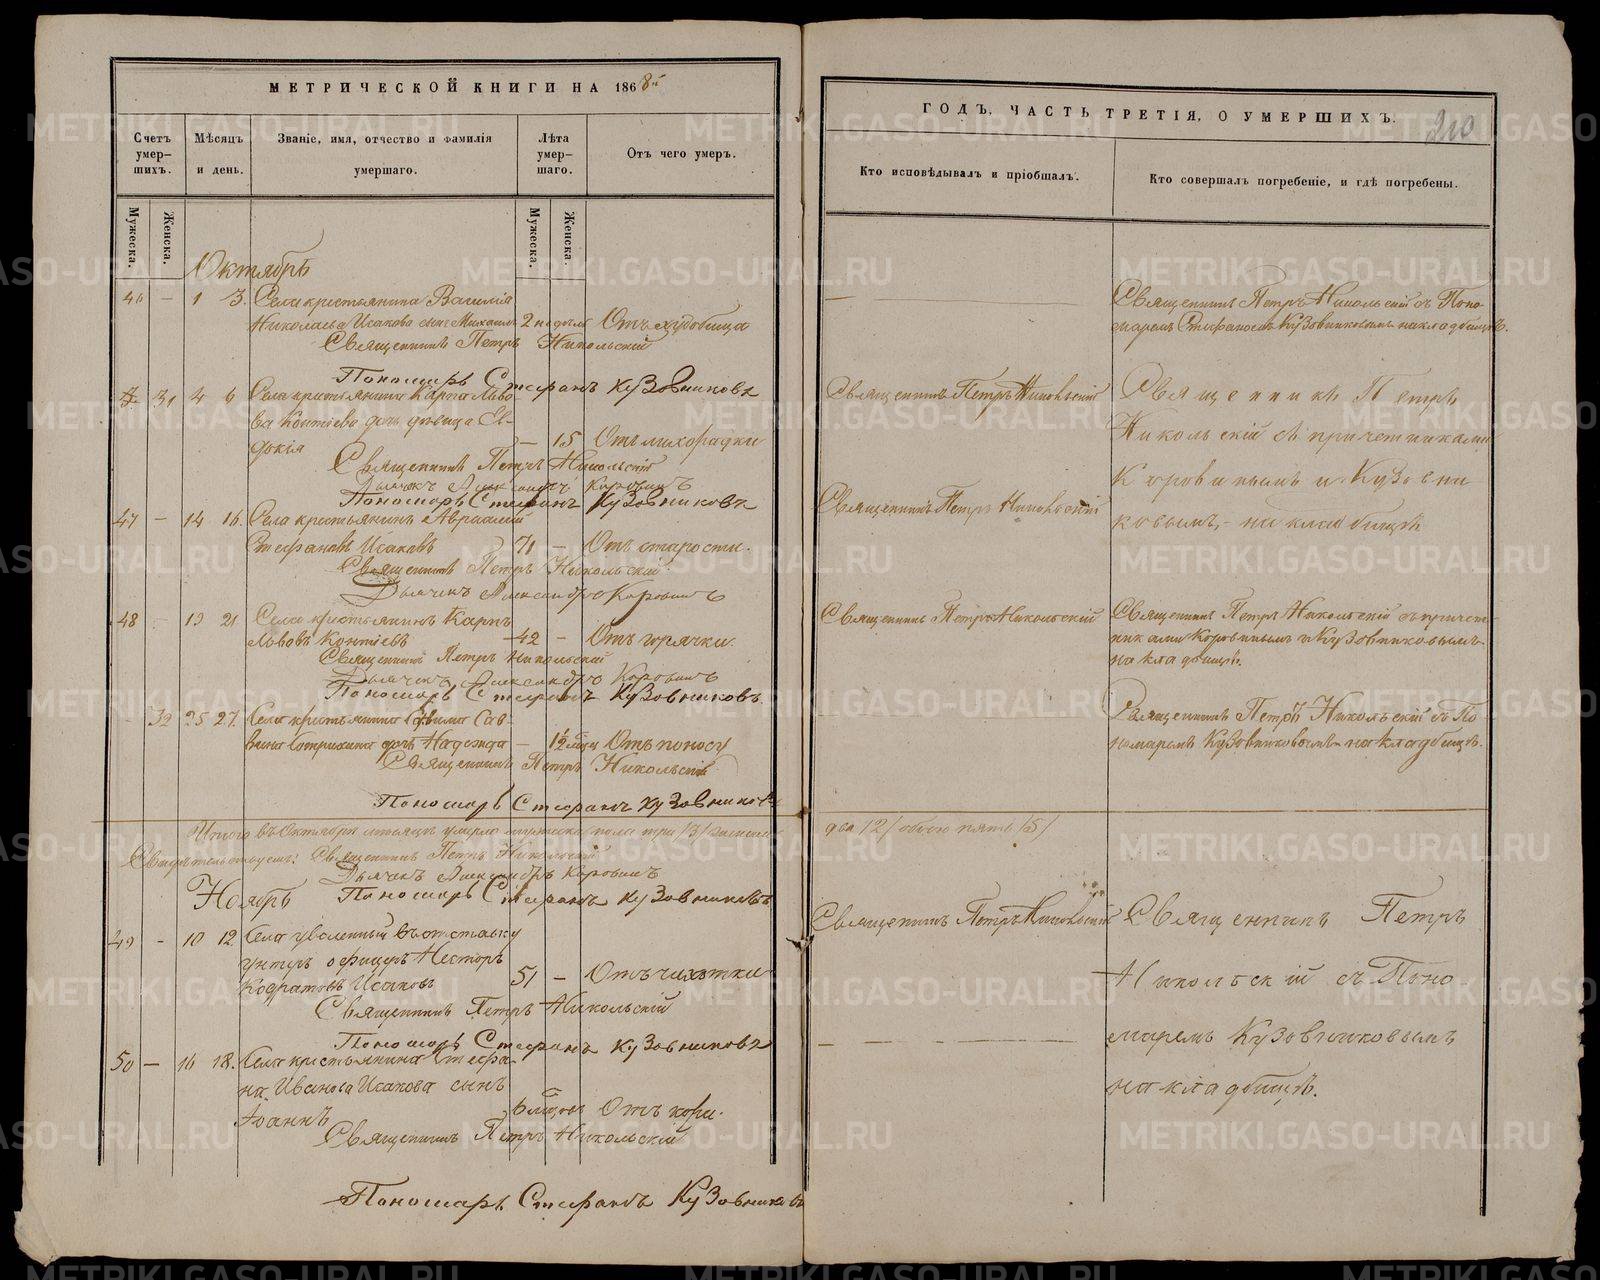 МЕТРИЧЕСКОЙ КНИГИ НА 1868й
Счетъ умер-
шихъ.
Мѣсяцъ
и день.
Званіе, имя, отчество и фамилія
умершаго.
Лѣта
умер-
шаго.
Отъ чего умеръ.
Мужеска.
Женска.
Мужеска.
Женска.
Октябрь
46 — 1 3. Села крестьянина Василія
Николаева Исакова сынъ Михаилъ 2 недѣли Отъ худобища
Священникъ Петръ Никольскій
Пономарь Стефанъ Кузовниковъ
31 4 6 Села крестьянина Карпа Льво-
ва Контіева дочь дѣвица Ев-
докія — 15 Отъ лихорадки
Священникъ Петръ Никольскій
Дьячекъ Александръ Коровинъ
Пономарь Стефанъ Кузовниковъ
47 — 14 16. Села крестьянинъ Авраамій
Стефановъ Исаковъ 71 — Отъ старости.
Священникъ Петръ Никольскій
Дьячекъ Александръ Коровинъ
48 19 21 Села крестьянинъ Карпъ
Львовъ Контіевъ 42 — Отъ горячки.
Священникъ Петръ Никольскій
Дьячекъ Александръ Коровинъ
Пономарь Стефанъ Кузовниковъ.
32 25 27. Села крестьянина Саввы Сав-
вина дочь Надежда — 1½ мѣся Отъ поносу
Священникъ Петръ Никольскій
Пономарь Стефанъ Кузовниковъ
Итого въ Октябрѣ мѣсяцѣ умерло мужеска пола три /3/ женска
Свидѣтельствуемъ: Священникъ Петръ Никольскій
Дьячекъ Александръ Коровинъ
Пономарь Стефанъ Кузовниковъ
Ноябрь
49 — 10 12 Села уволенный въ отставку
унтеръ офицеръ Несторъ
Кодратовъ Исаковъ 51 — Отъ чахотки
Священникъ Петръ Никольскій
Пономарь Стефанъ Кузовниковъ
50 — 16 18. Села крестьянина Стефа-
на Иванова Исакова сынъ
Іоаннъ 6 мѣсяцовъ Отъ кори.
Священникъ Петръ Никольскій
Пономарь Стефанъ Кузовниковъ
ГОДЪ, ЧАСТЬ ТРЕТІЯ, О УМЕРШИХЪ.
210
Кто исповѣдывалъ и пріобщалъ.
Кто совершалъ погребеніе, и гдѣ погребены.
Священникъ Петръ Никольскій съ Поно-
маремъ Стефаномъ Кузовниковымъ на кладбищѣ.
Священникъ Петръ Никольскій
Священникъ Петръ
Никольскій съ причетниками
Коровинымъ и Кузовни
ковымъ, — на кладбищѣ
Священникъ Петръ Никольскій
Священникъ Петръ Никольскій
Священникъ Петръ Никольскій съ причет-
никами Коровинымъ и Кузовниковымъ
на кладбищѣ.
Священникъ Петръ Никольскій съ По
номаремъ Кузовниковымъ на кладбищѣ.
два /2/ обоего пять /5/
Священникъ Петръ Никольскій
Священникъ Петръ
Никольскій съ Поно-
маремъ Кузовниковымъ
на кладбищѣ.
METRIKI.GASO-URAL.RU